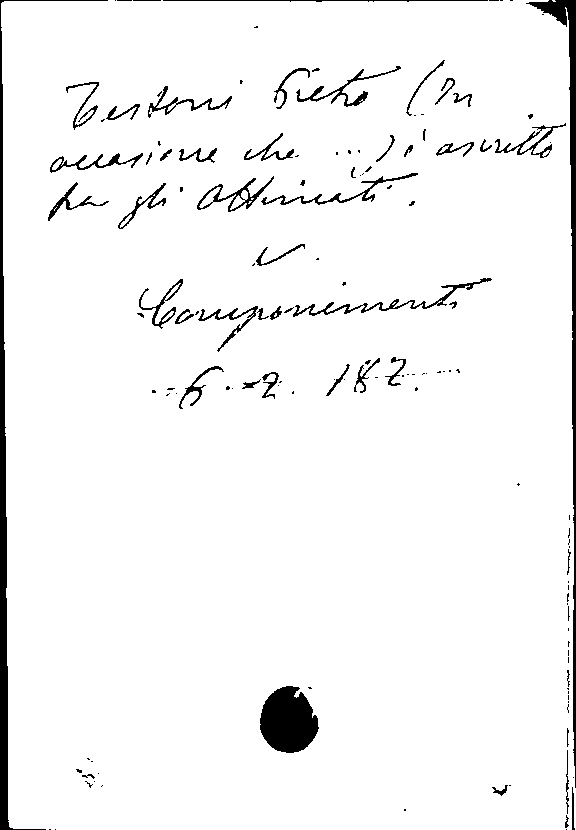 Testoni Pietro (In
occasione che ...) è ascritto
fra gli Ottimati.
V.
Componimenti
6. - 2. 187.